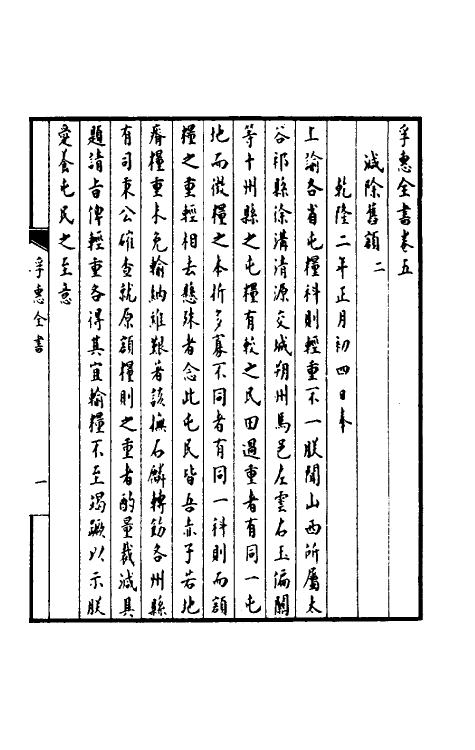 孚惠全書卷五
減除舊額二
乾隆二年正月初四日奉
上諭各省屯糧科則輕重不一朕聞山西所屬太
谷祁縣徐溝清源交城朔州馬邑左雲右玉偏關
等十州縣之屯糧有較之民田過重者有同一屯
地而徵糧之本折多寡不同者有同一科則而額
糧之重輕相去懸殊者念此屯民皆吾赤子若地
瘠糧重未免輸納維艱著該撫石麟轉飭各州縣
有司秉公確查就原額糧則之重者酌量裁減具
題請旨俾輕重各得其宜輸糧不至竭蹶以示朕
愛養屯民之至意
孚惠全書
一